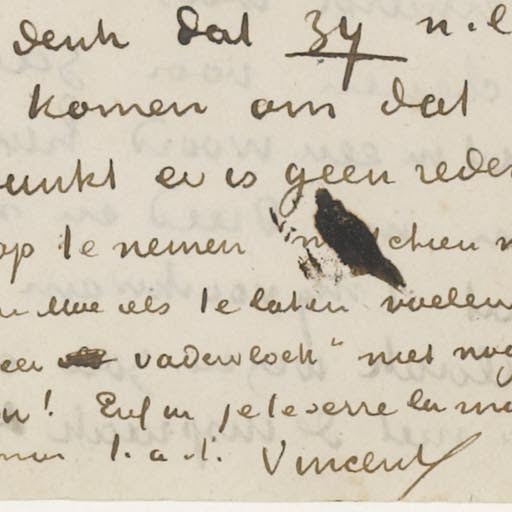 denk dat zy n.l
komen om dat
punkt er is geen reden
op te nemen
als te laten voelen
vadervloek" niet nog
! Enfin je te serre la ma
t. à t. Vincent